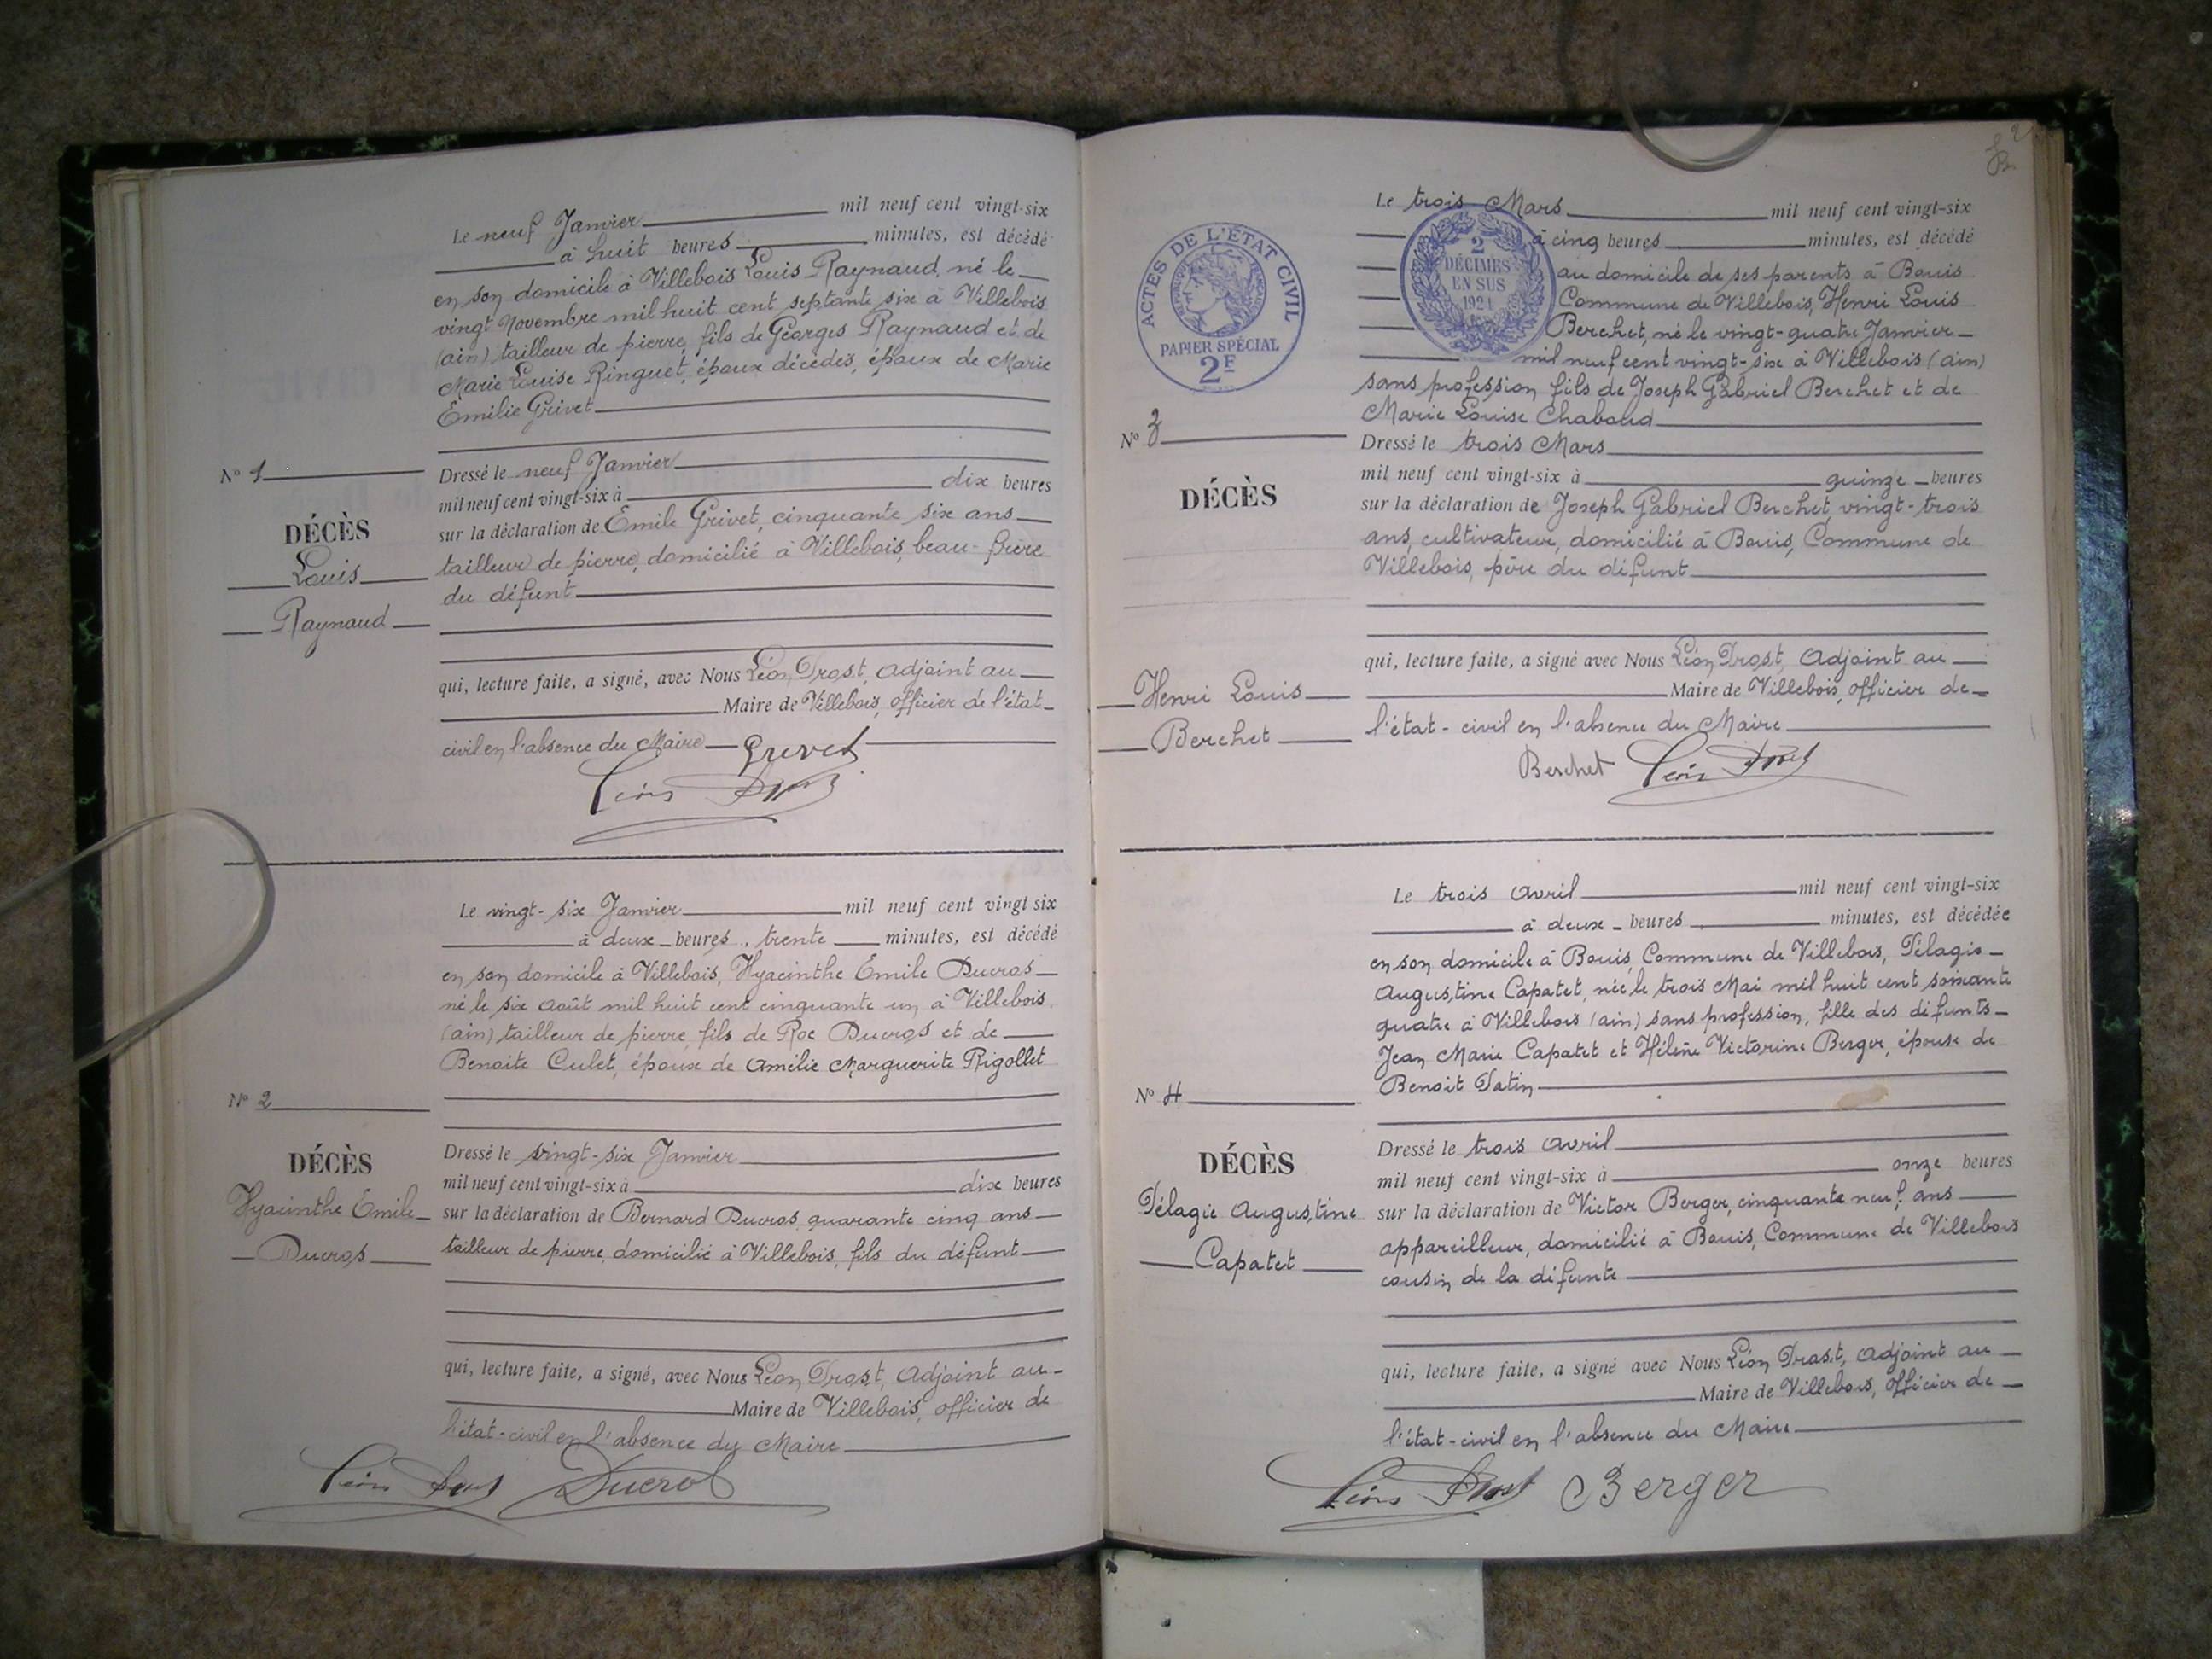 Le neuf Janvier mil neuf cent vingt-six
à huit heures minutes, est décédé
en son domicile à Villebois Louis Raynaud, né le
vingt Novembre mil huit cent septante six à Villebois
(ain) tailleur de pierre, fils de Georges Raynaud et de
Marie Louise Ringuet, époux décédés, époux de Marie
Emilie Grivet
Nº 1
DÉCÈS
Louis
Raynaud
Dressé le neuf Janvier
mil neuf cent vingt-six à dix heures
sur la déclaration de Emile Grivet, cinquante six ans
tailleur de pierre, domicilié à Villebois, beau-frère
du défunt
qui, lecture faite, a signé, avec Nous Léon Drost, adjoint au
Maire de Villebois, officier de l'état
civil en l'absence du Maire Grivet
Léon Drost
Le vingt-six Janvier mil neuf cent vingt six
à deux heures, trente minutes, est décédé
en son domicile à Villebois, Hyacinthe Emile Ducros
né le six août mil huit cent cinquante un à Villebois
(ain) tailleur de pierre, fils de Roc Ducros et de
Benoite Culet, époux de Amélie Marguerite Rigollet
Nº 2
DÉCÈS
Hyacinthe Emile
Ducros
Dressé le vingt-six Janvier
mil neuf cent vingt-six à dix heures
sur la déclaration de Bernard Ducros, quarante cinq ans
tailleur de pierre, domicilié à Villebois, fils du défunt
qui, lecture faite, a signé, avec Nous Léon Drost, adjoint au
Maire de Villebois, officier de
l'état-civil en l'absence du Maire
Léon Drost Ducros
2
ACTES DE L'ÉTAT CIVIL
PAPIER SPÉCIAL
2F
2
DÉCIMES
EN SUS
1921
Le trois Mars mil neuf cent vingt-six
à cinq heures minutes, est décédé
au domicile de ses parents à Bouis
Commune de Villebois, Henri Louis
Berchet, né le vingt-quatre Janvier
mil neuf cent vingt-six à Villebois (ain)
sans profession, fils de Joseph Gabriel Berchet et de
Marie Louise Chaboud
Nº 3
DÉCÈS
Henri Louis
Berchet
Dressé le trois Mars
mil neuf cent vingt-six à quinze heures
sur la déclaration de Joseph Gabriel Berchet, vingt-trois
ans, cultivateur, domicilié à Bouis, Commune de
Villebois, père du défunt
qui, lecture faite, a signé avec Nous Léon Drost, Adjoint au
Maire de Villebois, officier de
l'état-civil en l'absence du Maire
Berchet Léon Drost
Le trois avril mil neuf cent vingt-six
à deux heures minutes, est décédée
en son domicile à Bouis, Commune de Villebois, Pélagie
Augustine Capatet, née le trois Mai mil huit cent soixante
quatre à Villebois (ain) sans profession, fille des défunts
Jean Marie Capatet et Hélène Victorine Berger, épouse de
Benoit Patin
Nº 4
DÉCÈS
Pélagie Augustine
Capatet
Dressé le trois avril
mil neuf cent vingt-six à onze heures
sur la déclaration de Victor Berger, cinquante neuf ans
appareilleur, domicilié à Bouis, Commune de Villebois
cousin de la défunte
qui, lecture faite, a signé avec Nous Léon Drost, adjoint au
Maire de Villebois, officier de
l'état-civil en l'absence du Maire
Léon Drost Berger